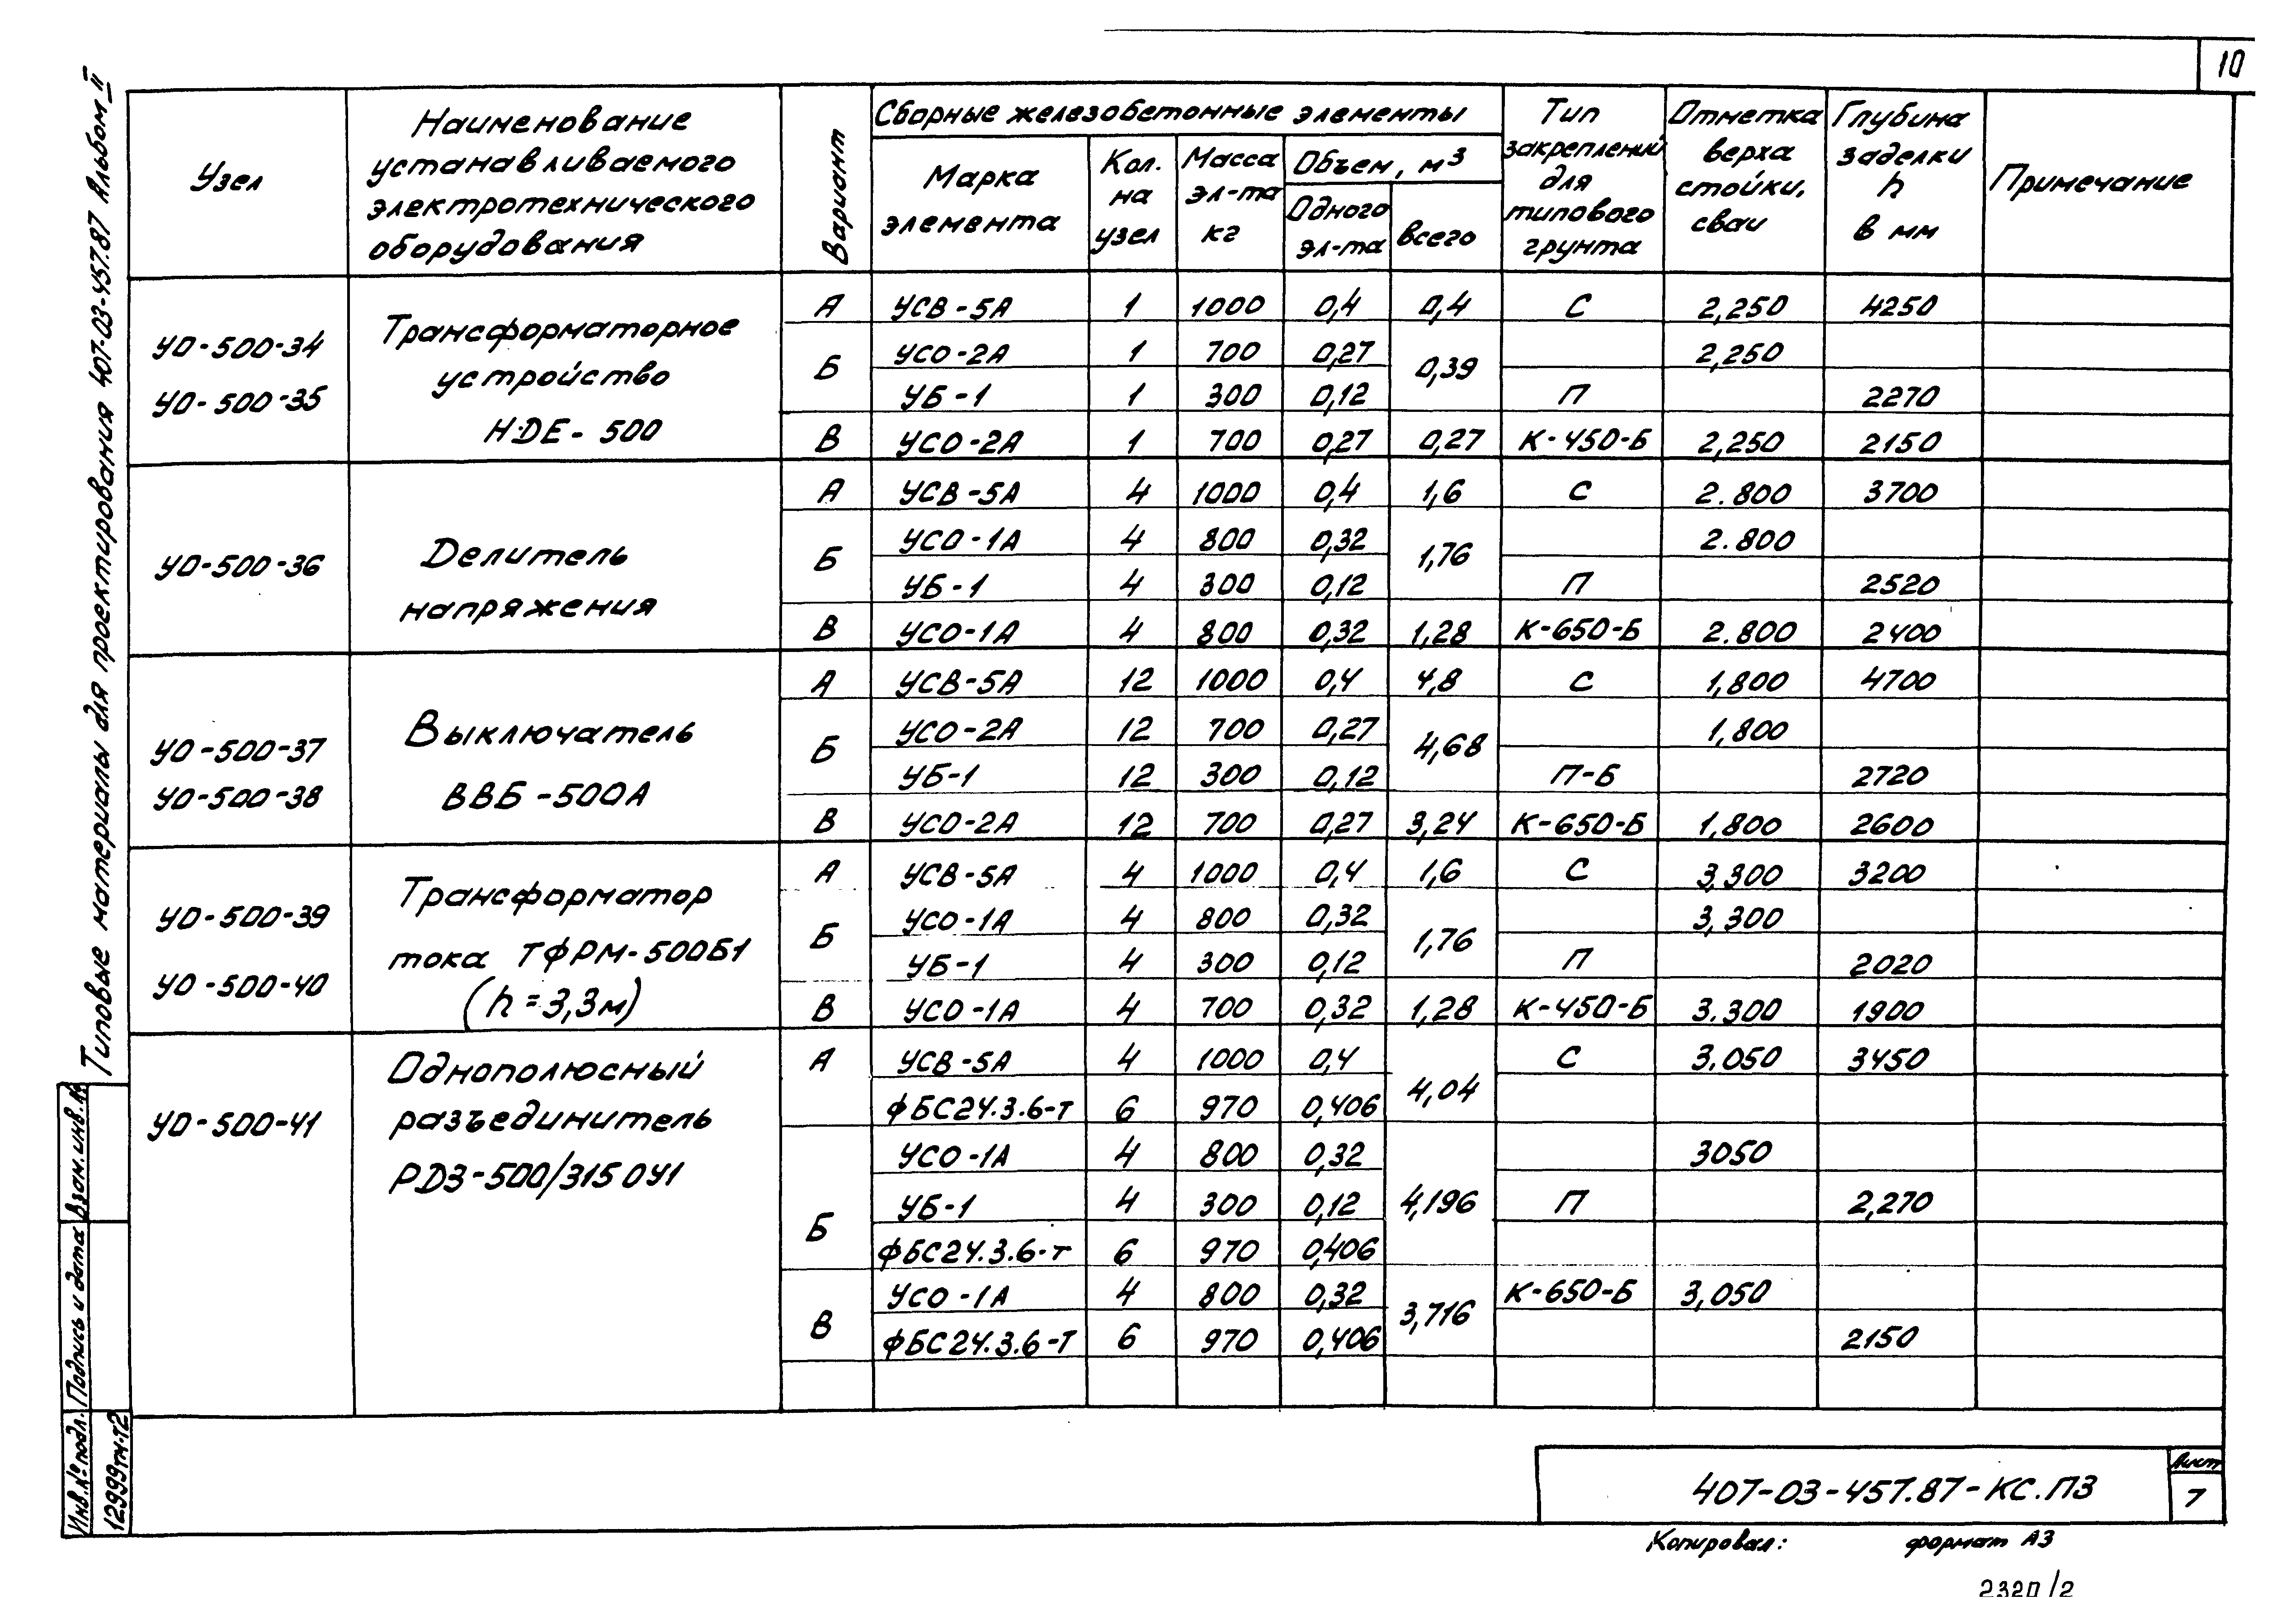 10
Типовые материалы для проектирования 407-03-457.87 Альбом II
Узел
Наименование
устанавливаемого
электротехнического
оборудования
Вариант
Сборные железобетонные элементы
Марка
элемента
Кол.
на
узел
Масса
эл-та
кг
Объем, м³
Одного
эл-та
всего
Тип
закреплений
для
типового
грунта
Отметка
верха
стойки,
сваи
Глубина
заделки
h
в мм
Примечание
УО-500-34
УО-500-35
Трансформаторное
устройство
НДЕ-500
А УСВ-5А 1 1000 0,4 0,4 С 2,250 4250
Б УСО-2А 1 700 0,27 0,39 2,250
УБ-1 1 300 0,12 П 2270
В УСО-2А 1 700 0,27 0,27 К-450-Б 2,250 2150
УО-500-36
Делитель
напряжения
А УСВ-5А 4 1000 0,4 1,6 С 2.800 3700
Б УСО-1А 4 800 0,32 1,76 2.800
УБ-1 4 300 0,12 П 2520
В УСО-1А 4 800 0,32 1,28 К-650-Б 2.800 2400
УО-500-37
УО-500-38
Выключатель
ВВБ-500А
А УСВ-5А 12 1000 0,4 4,8 С 1,800 4700
Б УСО-2А 12 700 0,27 4,68 1,800
УБ-1 12 300 0,12 П-Б 2720
В УСО-2А 12 700 0,27 3,24 К-650-Б 1,800 2600
УО-500-39
УО-500-40
Трансформатор
тока ТФРМ-500Б1
(h=3,3м)
А УСВ-5А 4 1000 0,4 1,6 С 3,300 3200
Б УСО-1А 4 800 0,32 1,76 3,300
УБ-1 4 300 0,12 П 2020
В УСО-1А 4 700 0,32 1,28 К-450-Б 3.300 1900
УО-500-41
Однополюсный
разъединитель
РДЗ-500/3150У1
А УСВ-5А 4 1000 0,4 4,04 С 3.050 3450
ФБС24.3.6-т 6 970 0,406
Б УСО-1А 4 800 0,32 4,196 3050
УБ-1 4 300 0,12 П 2,270
ФБС24.3.6-т 6 970 0,406
В УСО-1А 4 800 0,32 3,716 К-650-Б 3,050
ФБС24.3.6-Т 6 970 0,406 2150
Взам.инв.№
Подпись и дата
Инв.№ подл.
12999тм-т2
407-03-457.87-КС.ПЗ
Лист
7
Копировал:
формат А3
2320/2